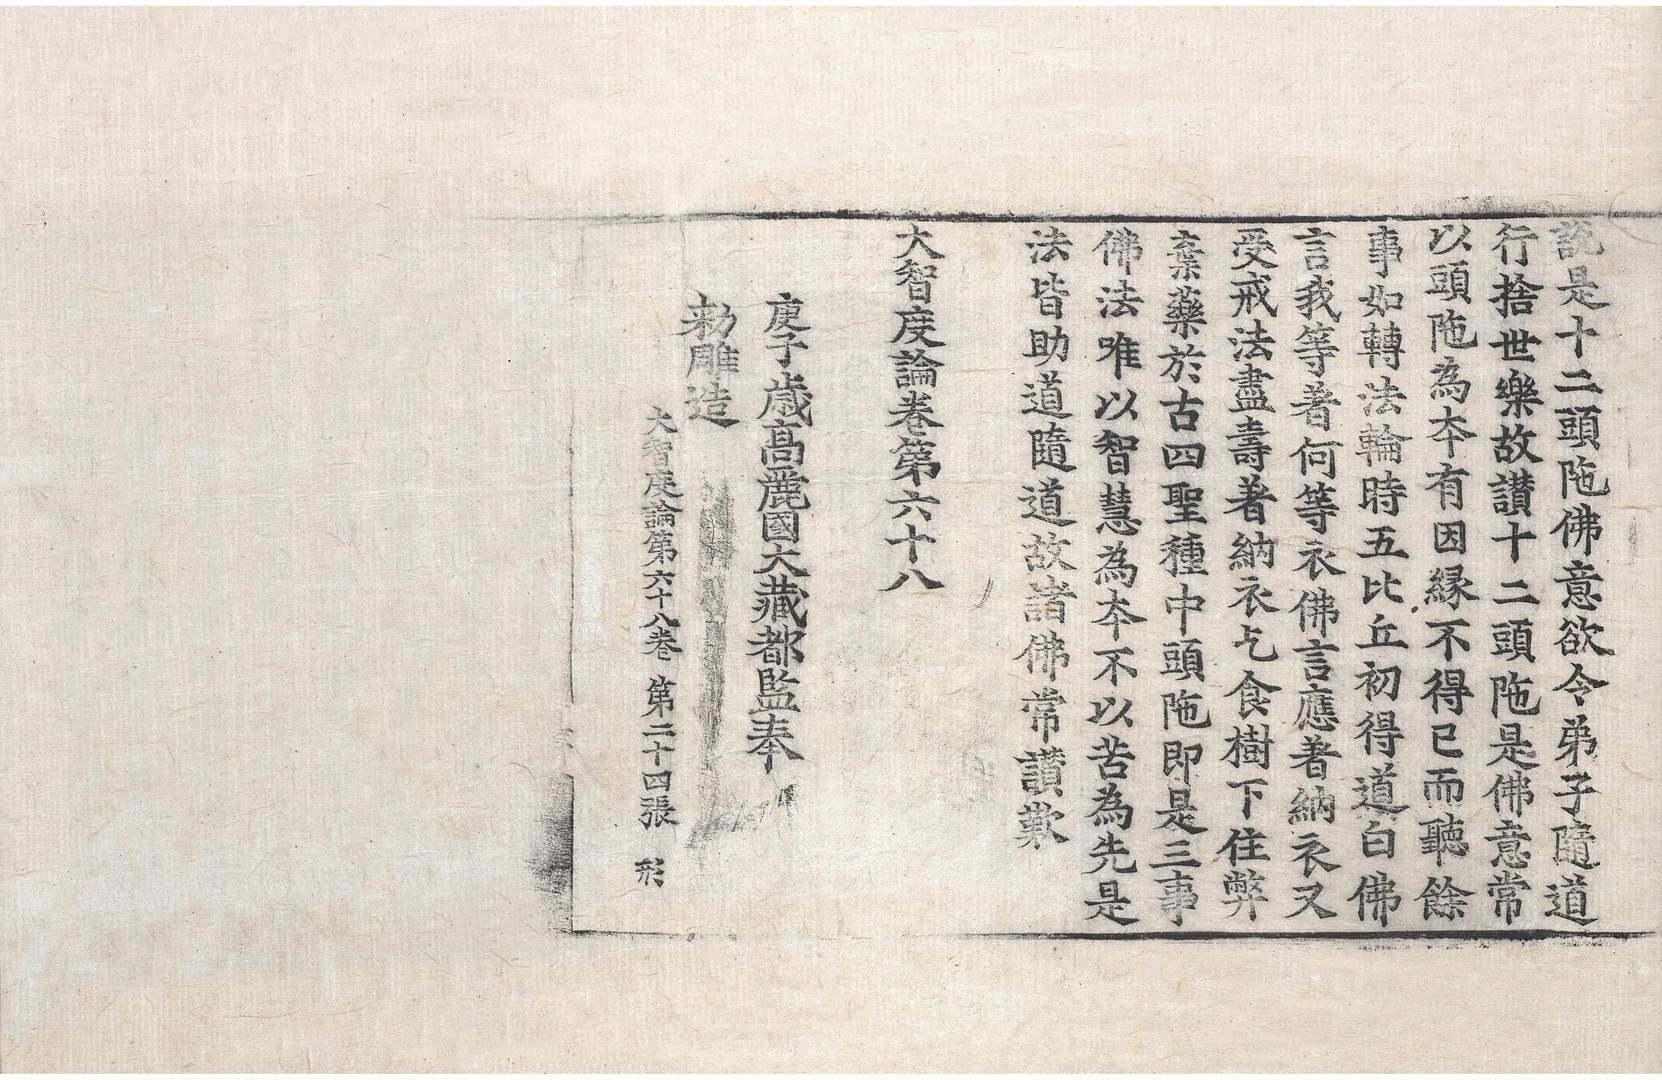 說是十二頭陁佛意欲令弟子隨道
行捨世樂故讃十二頭陁是佛意常
以頭陁為夲有因縁不得已而聽餘
事如轉法輪時五比丘初得道白佛
言我等著何等衣佛言應著納衣又
受戒法盡壽著納衣乞食樹下住弊
棄藥於古四聖種中頭陁即是三事
佛法唯以智慧為夲不以苦為先是
法皆助道隨道故諸佛常讃歎
大智度論卷第六十八
庚子歲高麗國大藏都監奉
勑雕造
大智度論第六十八卷 第二十四張 形